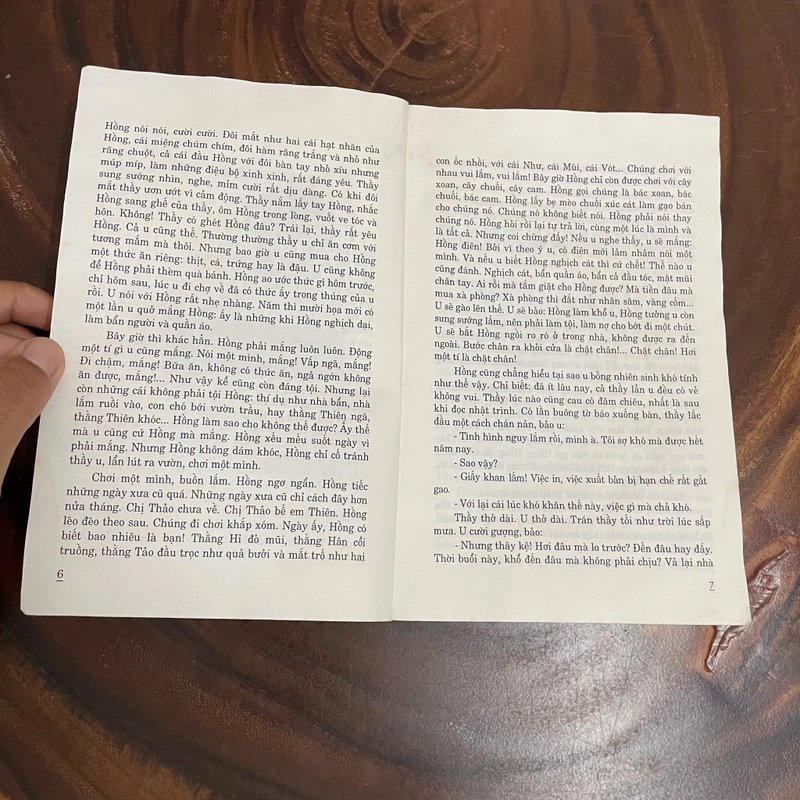 Hồng nói nói, cười cười. Đôi mắt như hai cái hạt nhãn của
Hồng, cái miệng chúm chím, đôi hàm răng trắng và nhỏ như
răng chuột, cả cái đầu Hồng với đôi bàn tay nhỏ xíu nhưng
múp míp, làm những điệu bộ xinh xinh, rất đáng yêu. Thầy
sung sướng nhìn, nghe, mỉm cười rất dịu dàng. Có khi đôi
mắt thầy ươn ướt vì cảm động. Thầy nắm lấy tay Hồng, nhấc
Hồng sang ghế của thầy, ôm Hồng trong lòng, vuốt ve tóc và
hôn. Không! Thầy có ghét Hồng đâu? Trái lại, thầy rất yêu
Hồng. Cả u cũng thế. Thường thường thầy u chỉ ăn cơm với
tương mắm mà thôi. Nhưng bao giờ u cũng mua cho Hồng
một thức ăn riêng: thịt, cá, trứng hay là đậu. U cũng không
để Hồng phải thèm quà bánh. Hồng ao ước thức gì hôm trước,
chỉ hôm sau, lúc u đi chợ về đã có thức ấy trong thúng của u
rồi. U nói với Hồng rất nhẹ nhàng. Năm thì mười họa mới có
một lần u quở mắng Hồng: ấy là những khi Hồng nghịch dại,
làm bẩn người và quần áo.
Bây giờ thì khác hẳn. Hồng phải mắng luôn luôn. Động
một tí gì u cũng mắng. Nói một mình, mắng! Vấp ngã, mắng!
Đi chậm, mắng! Bữa ăn, không có thức ăn, ngả ngớn không
ăn được, mắng!... Như vậy kể cũng còn đáng tội. Nhưng lại
còn những cái không phải tội Hồng: thí dụ như nhà bẩn, nhà
lắm ruồi vào, con chó bới vườn trầu, hay thằng Thiên ngã,
thằng Thiên khóc... Hồng làm sao cho không thế được? Ấy thế
mà u cũng cứ Hồng mà mắng. Hồng xếu mếu suốt ngày vì
phải mắng. Nhưng Hồng không dám khóc, Hồng chỉ cố tránh
thầy u, lẩn lút ra vườn, chơi một mình.
Chơi một mình, buồn lắm. Hồng ngơ ngẩn. Hồng tiếc
những ngày xưa cũ quá. Những ngày xưa cũ chỉ cách đây hơn
nửa tháng. Chị Thảo chưa về. Chị Thảo bế em Thiên. Hồng
lẽo đẽo theo sau. Chúng đi chơi khắp xóm. Ngày ấy, Hồng có
biết bao nhiêu là bạn! Thằng Hỉ đỏ mũi, thằng Hân cổi
truồng, thằng Tảo đầu trọc như quả bưởi và mắt trố như hai
6
con ốc nhồi, với cái Như, cái Mùi, cái Vót... Chúng chơi với
nhau vui lắm, vui lắm! Bây giờ Hồng chỉ còn được chơi với cây
xoan, cây chuối, cây cam. Hồng gọi chúng là bác xoan, bác
chuối, bác cam. Hồng lấy bẹ mèo chuối xúc cát làm gạo bán
cho chúng nó. Chúng nó không biết nói. Hồng phải nói thay
chúng nó. Hồng hỏi rồi lại tự trả lời, cùng một lúc là mình và
là tất cả. Nhưng coi chừng đấy! Nếu u nghe thấy, u sẽ mắng:
Hồng điên! Bởi vì theo ý u, có điên mới lảm nhảm nói một
mình. Và nếu u biết Hồng nghịch cát thì cứ chết! Thế nào u
cũng đánh. Nghịch cát, bẩn quần áo, bẩn cả đầu tóc, mặt mũi
chân tay. Ai rồi mà tắm giặt cho Hồng được? Mà tiền đâu mà
mua xà phòng? Xà phòng thì đắt như nhân sâm, vàng cốm...
U sẽ gào lên thế. U sẽ bảo: Hồng làm khổ u, Hồng tưởng u còn
sung sướng lắm, nên phải làm tội, làm nợ cho bớt đi một chút.
U sẽ bắt Hồng ngồi ro ró ở trong nhà, không được ra đến
ngoài. Bước chân ra khỏi cửa là chặt chân!... Chặt chân! Hơi
một tí là chặt chân!
Hồng cũng chẳng hiểu tại sao u bỗng nhiên sinh khó tính
như thế vậy. Chỉ biết: đã ít lâu nay, cả thầy lẫn u đều có vẻ
không vui. Thầy lúc nào cũng đau có đăm chiêu, nhất là sau
khi đọc nhật trình. Có lần buông tờ báo xuống bàn, thầy lắc
đầu một cách chán nản, bảo u:
- Tình hình nguy lắm rồi, mình ạ. Tôi sợ khó mà được hết
năm nay.
- Sao vậy?
- Giấy khan lắm! Việc in, việc xuất bản bị hạn chế rất gắt
gao.
- Với lại cái lúc khó khăn thế này, việc gì mà chả khó.
Thầy thở dài. U thở dài. Trán thầy tối như trời lúc sắp
mưa. U cười gượng, bảo:
- Nhưng thây kệ! Hơi đâu mà lo trước? Đến đâu hay đấy.
Thời buổi này, khổ đến đâu mà không phải chịu? Vả lại nhà
7